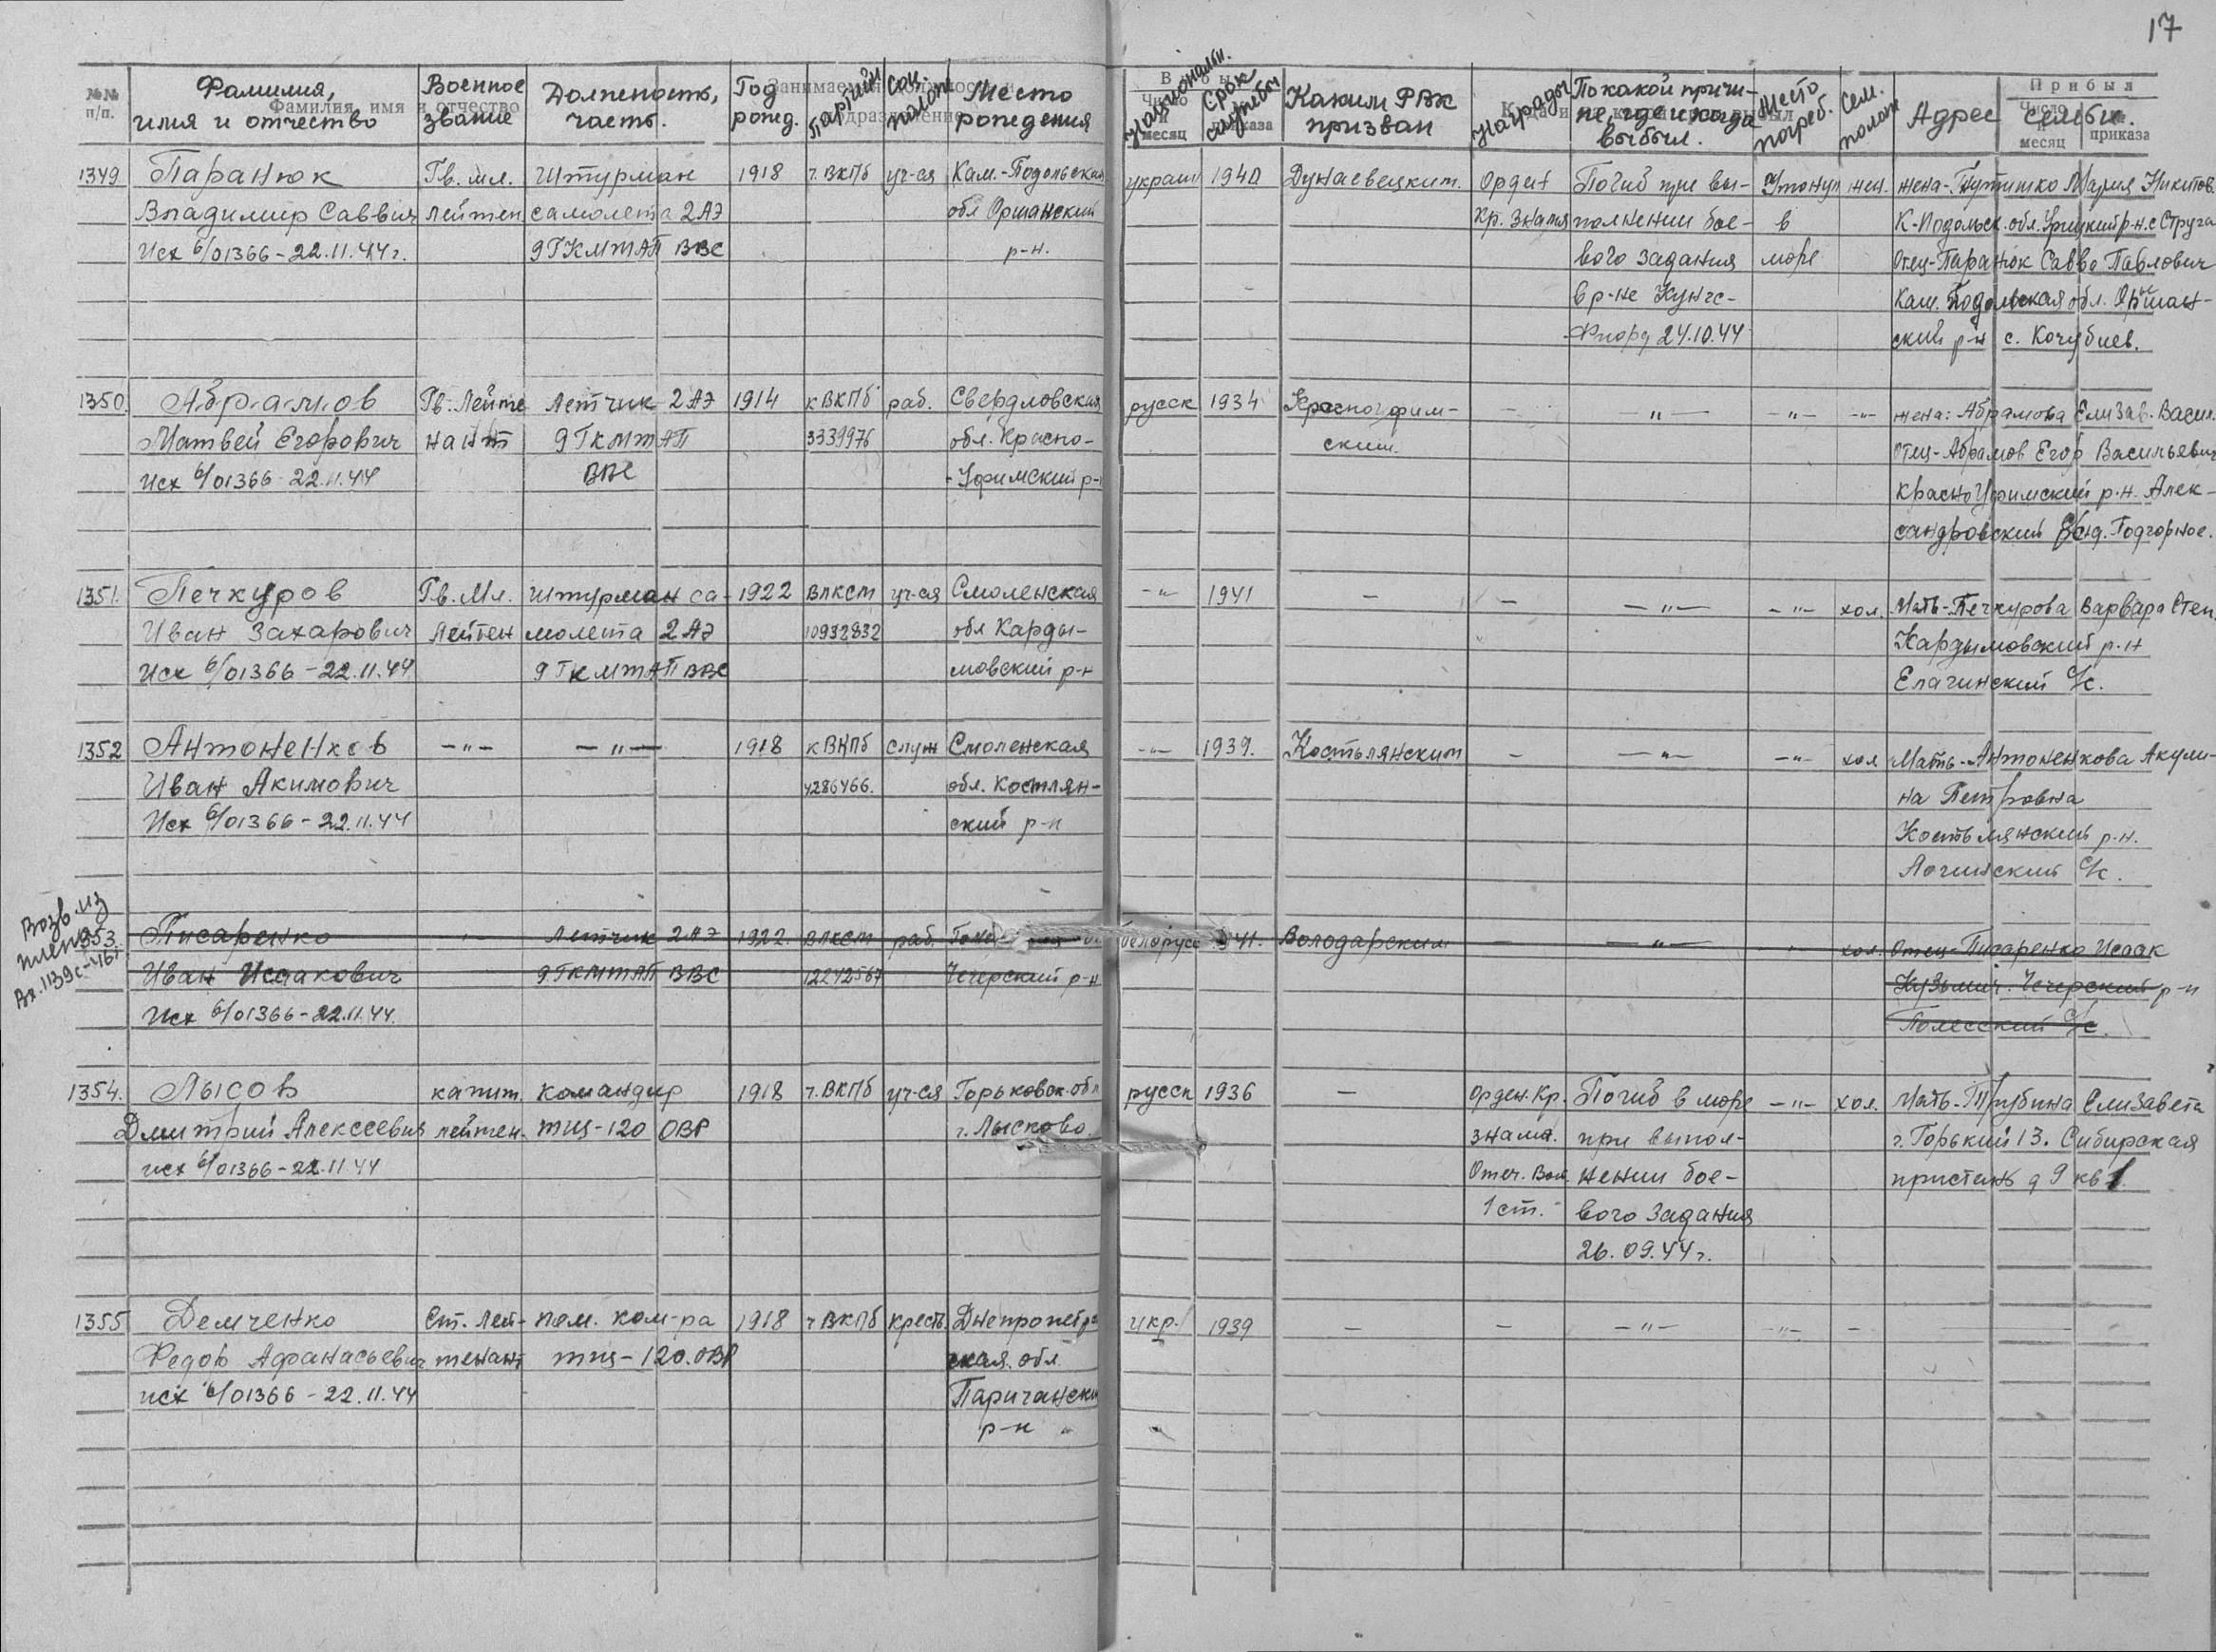 17
№№ п/п.
Фамилия, имя и отчество
Военное звание
Должность, часть.
Год рожд.
Партийн
Соц. полож
Место рождения
Национальн.
Срок службы
Каким РВК призван
Награды
По какой причине, где и когда выбыл.
Место погреб.
Сем. полож
Адрес семьи.
Фамилия, имя и отчество
Прибыл
Число и месяц
приказа
1349 Паранюк Гв. мл. Штурман 1918 ч. ВКПб уч-ся Кам.-Подольская украин 1940 Дунаевецким. Орден Погиб при вы- Утонул жен. жена- Мария Никитов.
Владимир Саввич лейтен самолета 2 АЭ обл Кр. Знамя полнении бое- в К-Подольск. обл. р-н. с Струга
Исх б/01366-22.11.44г. 9 ГКМТАП ВВС р-н. вого задания море Отец-Паранюк Савва Павлович
в р-не Кунгс- Кам. Подольская обл.
Фиорд 24.10.44 ский р-н с. Кочубиев.
1350. Абрамов Гв. Лейте Летчик 2 АЭ 1914 к ВКПб раб. Свердловская русск 1934 Красноуфим- – –"– –"– –"– жена: Абрамова Елизав. Васил.
Матвей Егорович нант 9 ГКМТАП 3339976 обл. Красно- ским. Отец-Абрамов Егор Васильевич
Исх б/01366-22.11.44 ВВС -Уфимский р- КрасноУфимский р-н. Алек-
сандровский с/с д. Подгорное.
1351. Печкуров Гв. Мл. Штурман са- 1922 ВЛКСМ уч-ся Смоленская –"– 1941 – – –"– –"– хол. Мать-Печкурова Варвара Степ.
Иван Захарович Лейтен молета 2 АЭ 10932832 обл Карды- Кардымовский р-н
Исх б/01366-22.11.44 9 ГКМТАП ВВС мовский р-н Елагинский с/с.
1352 Антоненков –"– –"– 1918 к ВКПб служ Смоленская –"– 1939. Костьлянским – –"– –"– хол Мать-Антоненкова Акули-
Иван Акимович 4286466. обл. Костлян- на Петровна
Исх б/01366-22.11.44 ский р-н Костьлянский р-н.
с/с.
Возв. из
плена
Вх. 1139с-46г
1353. Писаренко –"– Летчик 2 АЭ 1922. ВЛКСМ раб. белорусс 1941. Володарским – –"– " хол. Отец-Писаренко Исаак
Иван Исаакович 9 ГКМТАП ВВС 12242567 Чечерский р-н Кузьмич. Чечерский р-н
Исх б/01366-22.11.44. Полесский с/с.
1354. Лысов капит. командир 1918 ч. ВКПб уч-ся Горьковск. обл русск 1936 – Орден. Кр. Погиб в море –"– хол. Мать-Трубина Елизавета
Дмитрий Алексеевич лейтен. тщ-120 ОВР г. Лысково. знамя. при выпол- г. Горький 13. Сибирская
исх б/01366-22.11.44 Отеч. Вой. нении бое- пристань д 9 кв 1
1 ст. вого задания
26.09.44г.
1355 Демченко Ст. Лей- пом. ком-ра 1918 ч ВКПб крестъ Днепропетр укр. 1939 – – –"– –"– –
Федор Афанасьевич тенант тщ-120.ОВР ская. обл.
исх б/01366-22.11.44 Паричански
р-н